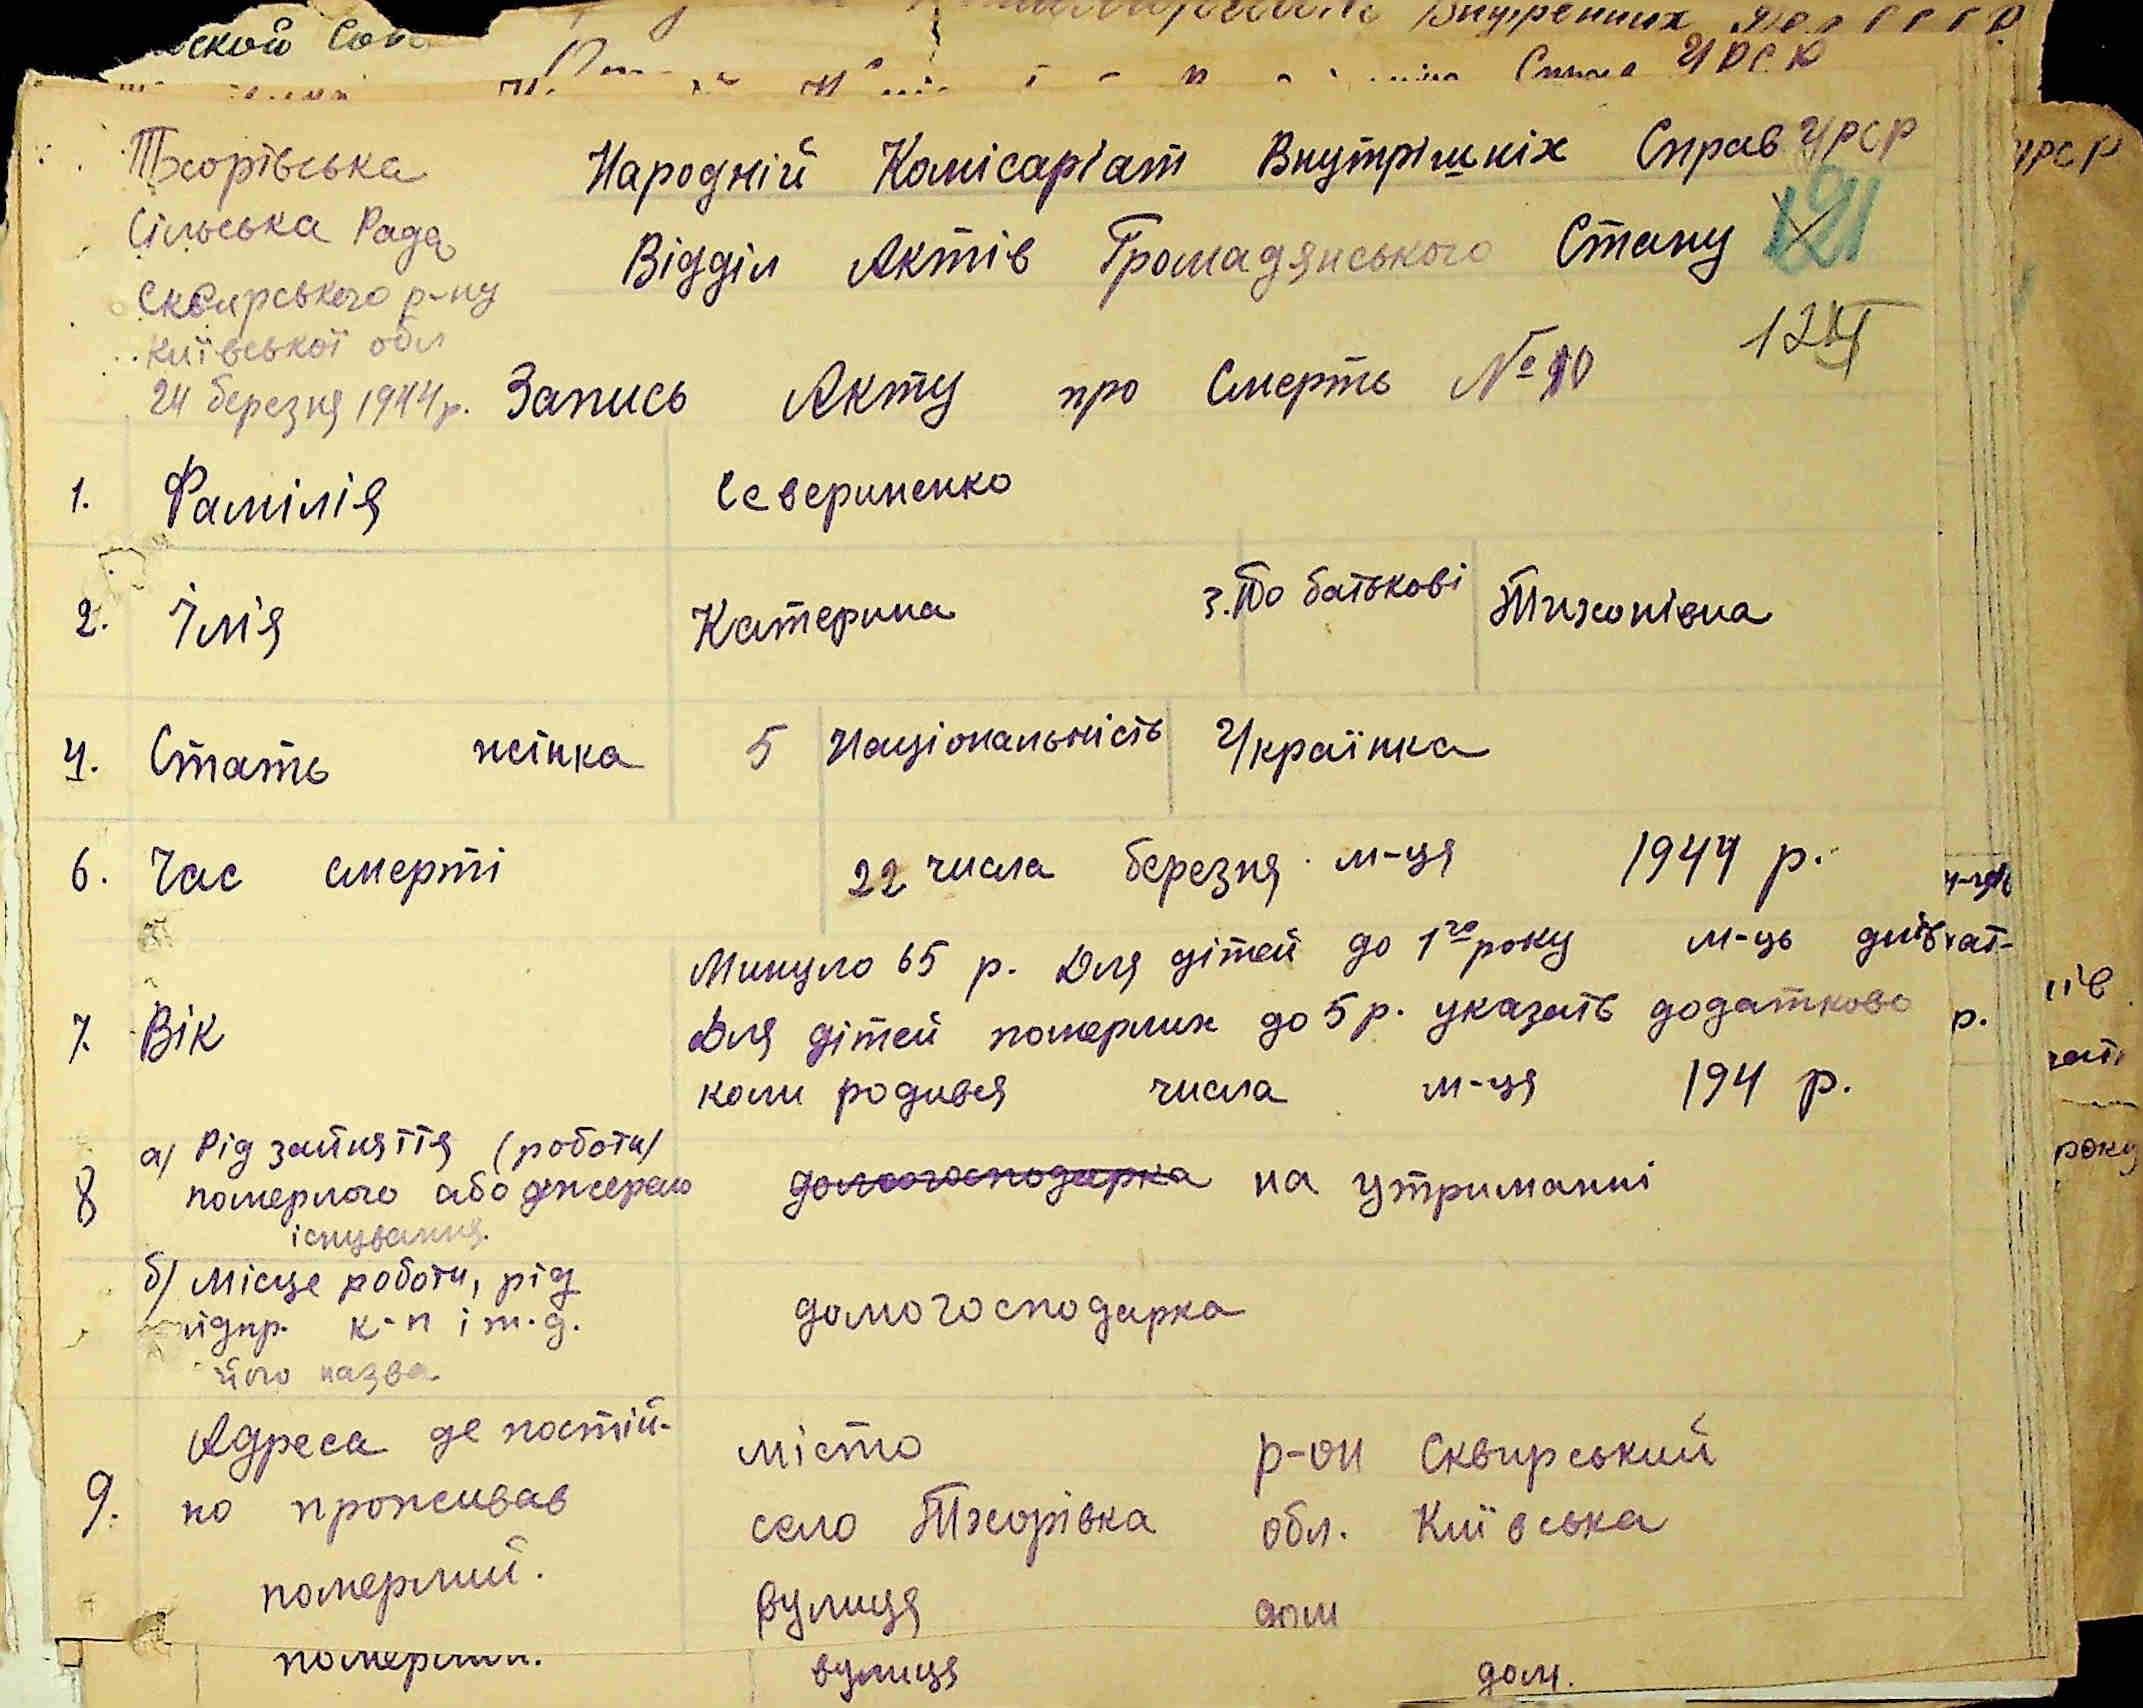 ской
Внутренних
Справ УРСР
Тхорівська
Сільська Рада
Сквирського р-ну
Київської обл
24 березня 1944 р.
Народній Комісаріат Внутрішніх Справ УРСР
Відділ Актів Громадянського Стану
Запись Акту про Смерть № 10
1. Фамілія Севериненко
2. Імія Катерина 3. По батькові Тихонівна
4. Стать жінка 5 Національність Українка
6. Час смерті 22 числа березня м-ця 1944 р.
7. Вік Минуло 65 р. Для дітей до 1го року м-ць днів
Для дітей померлих до 5 р. указать додатково
коли родився числа м-ця 194 р.
8 а) Рід зайняття (роботи)
померлого або джерело
існування.
домогосподарка на утриманні
б) Місце роботи, рід
підпр. к-п і т.д.
його назва
домогосподарка
9. Адреса де постій-
но проживав
померлий.
місто р-он Сквирський
село Тхорівка обл. Київська
вулиця дом
померлий. вулиця дом.
УРСР
р.
ів
року